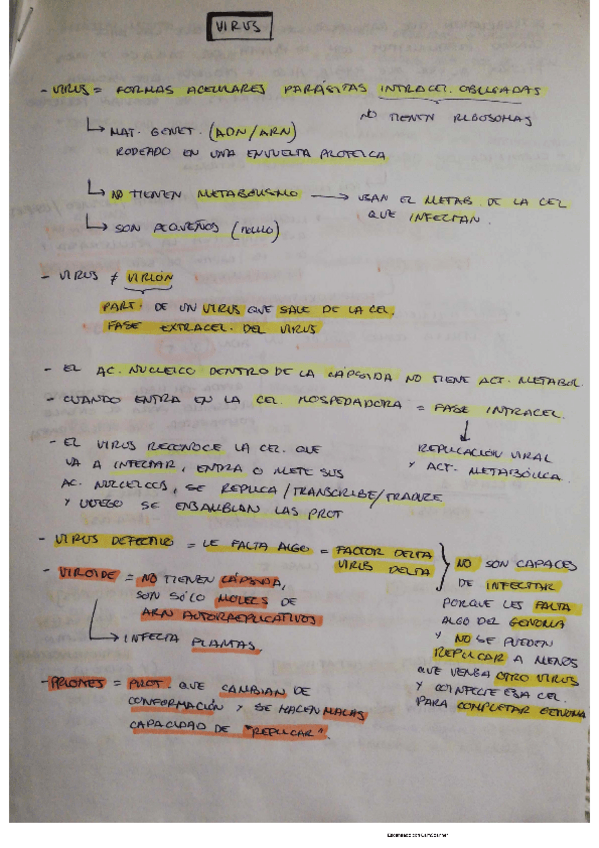 VIRUS
- VIRUS = FORMAS ACELULARES PARÁSITAS INTRACEL. OBLIGADAS
NO TIENEN RIBOSOMAS
↳ MAT. GENET. (ADN/ARN)
RODEADO EN UNA ENVUELTA PROTEICA
↳ NO TIENEN METABOLISMO → USAN EL METAB. DE LA CEL
QUE INFECTAN.
↳ SON PEQUEÑOS
- VIRUS ≠ VIRIÓN
PART. DE UN VIRUS QUE SALE DE LA CEL.
FASE EXTRACEL. DEL VIRUS
- EL AC. NUCLEICO DENTRO DE LA CÁPSIDA NO TIENE ACT. METABOL.
- CUANDO ENTRA EN LA CEL. HOSPEDADORA = FASE INTRACEL.
↓
REPLICACIÓN VIRAL
Y ACT. METABÓLICA.
- EL VIRUS RECONOCE LA CEL. QUE
VA A INFECTAR, ENTRA O METE SUS
AC. NUCLEICOS, SE REPLICA/TRANSCRIBE/TRADUCE
Y LUEGO SE ENSAMBLAN LAS PROT
- VIRUS DEFECTIVO = LE FALTA ALGO = FACTOR DELTA
VIRUS DELTA
NO SON CAPACES
DE INFECTAR
PORQUE LES FALTA
ALGO DEL GENOMA
Y NO SE PUEDEN
REPLICAR A MENOS
QUE VENGA OTRO VIRUS
Y COINFECTE ESA CEL.
PARA COMPLETAR GENOMA
- VIROIDE = NO TIENEN CÁPSIDA,
SON SÓLO MOLECS DE
ARN AUTORREPLICATIVOS
↳ INFECTA PLANTAS.
- PRIONES = PROT. QUE CAMBIAN DE
CONFORMACIÓN Y SE HACEN MALAS
CAPACIDAD DE "REPLICAR".
Escaneado con CamScanner